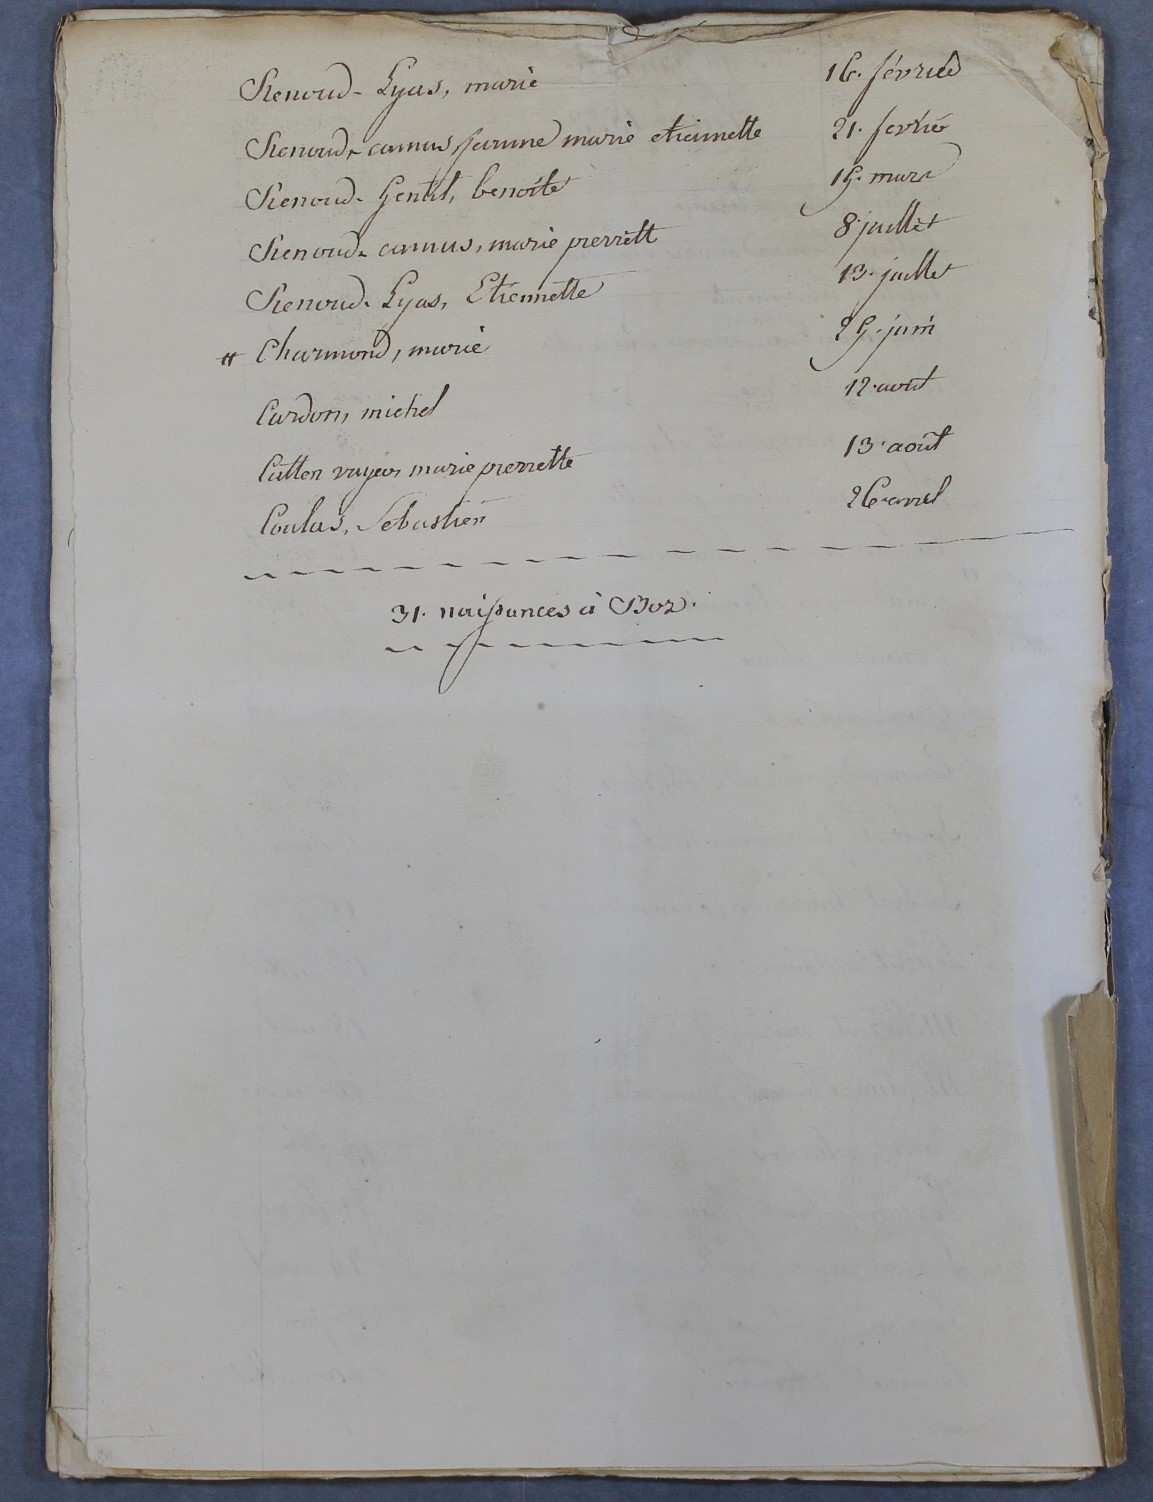 Renoud-Lyas, marie 16. février
Renoud-camus, jeanne marie etiennette 21. fevrié
Renoud-Gentil, benoite 19. mars
Renoud-camus, marie pierrette 8 juillet
Renoud-Lyas, Etiennette 13. juillet
" Charmond, marie 29. juin
Cardon, michel 12. août
marie pierrette 13. août
Coulas, Sébastien 26 avril
31. naissances à Boz.